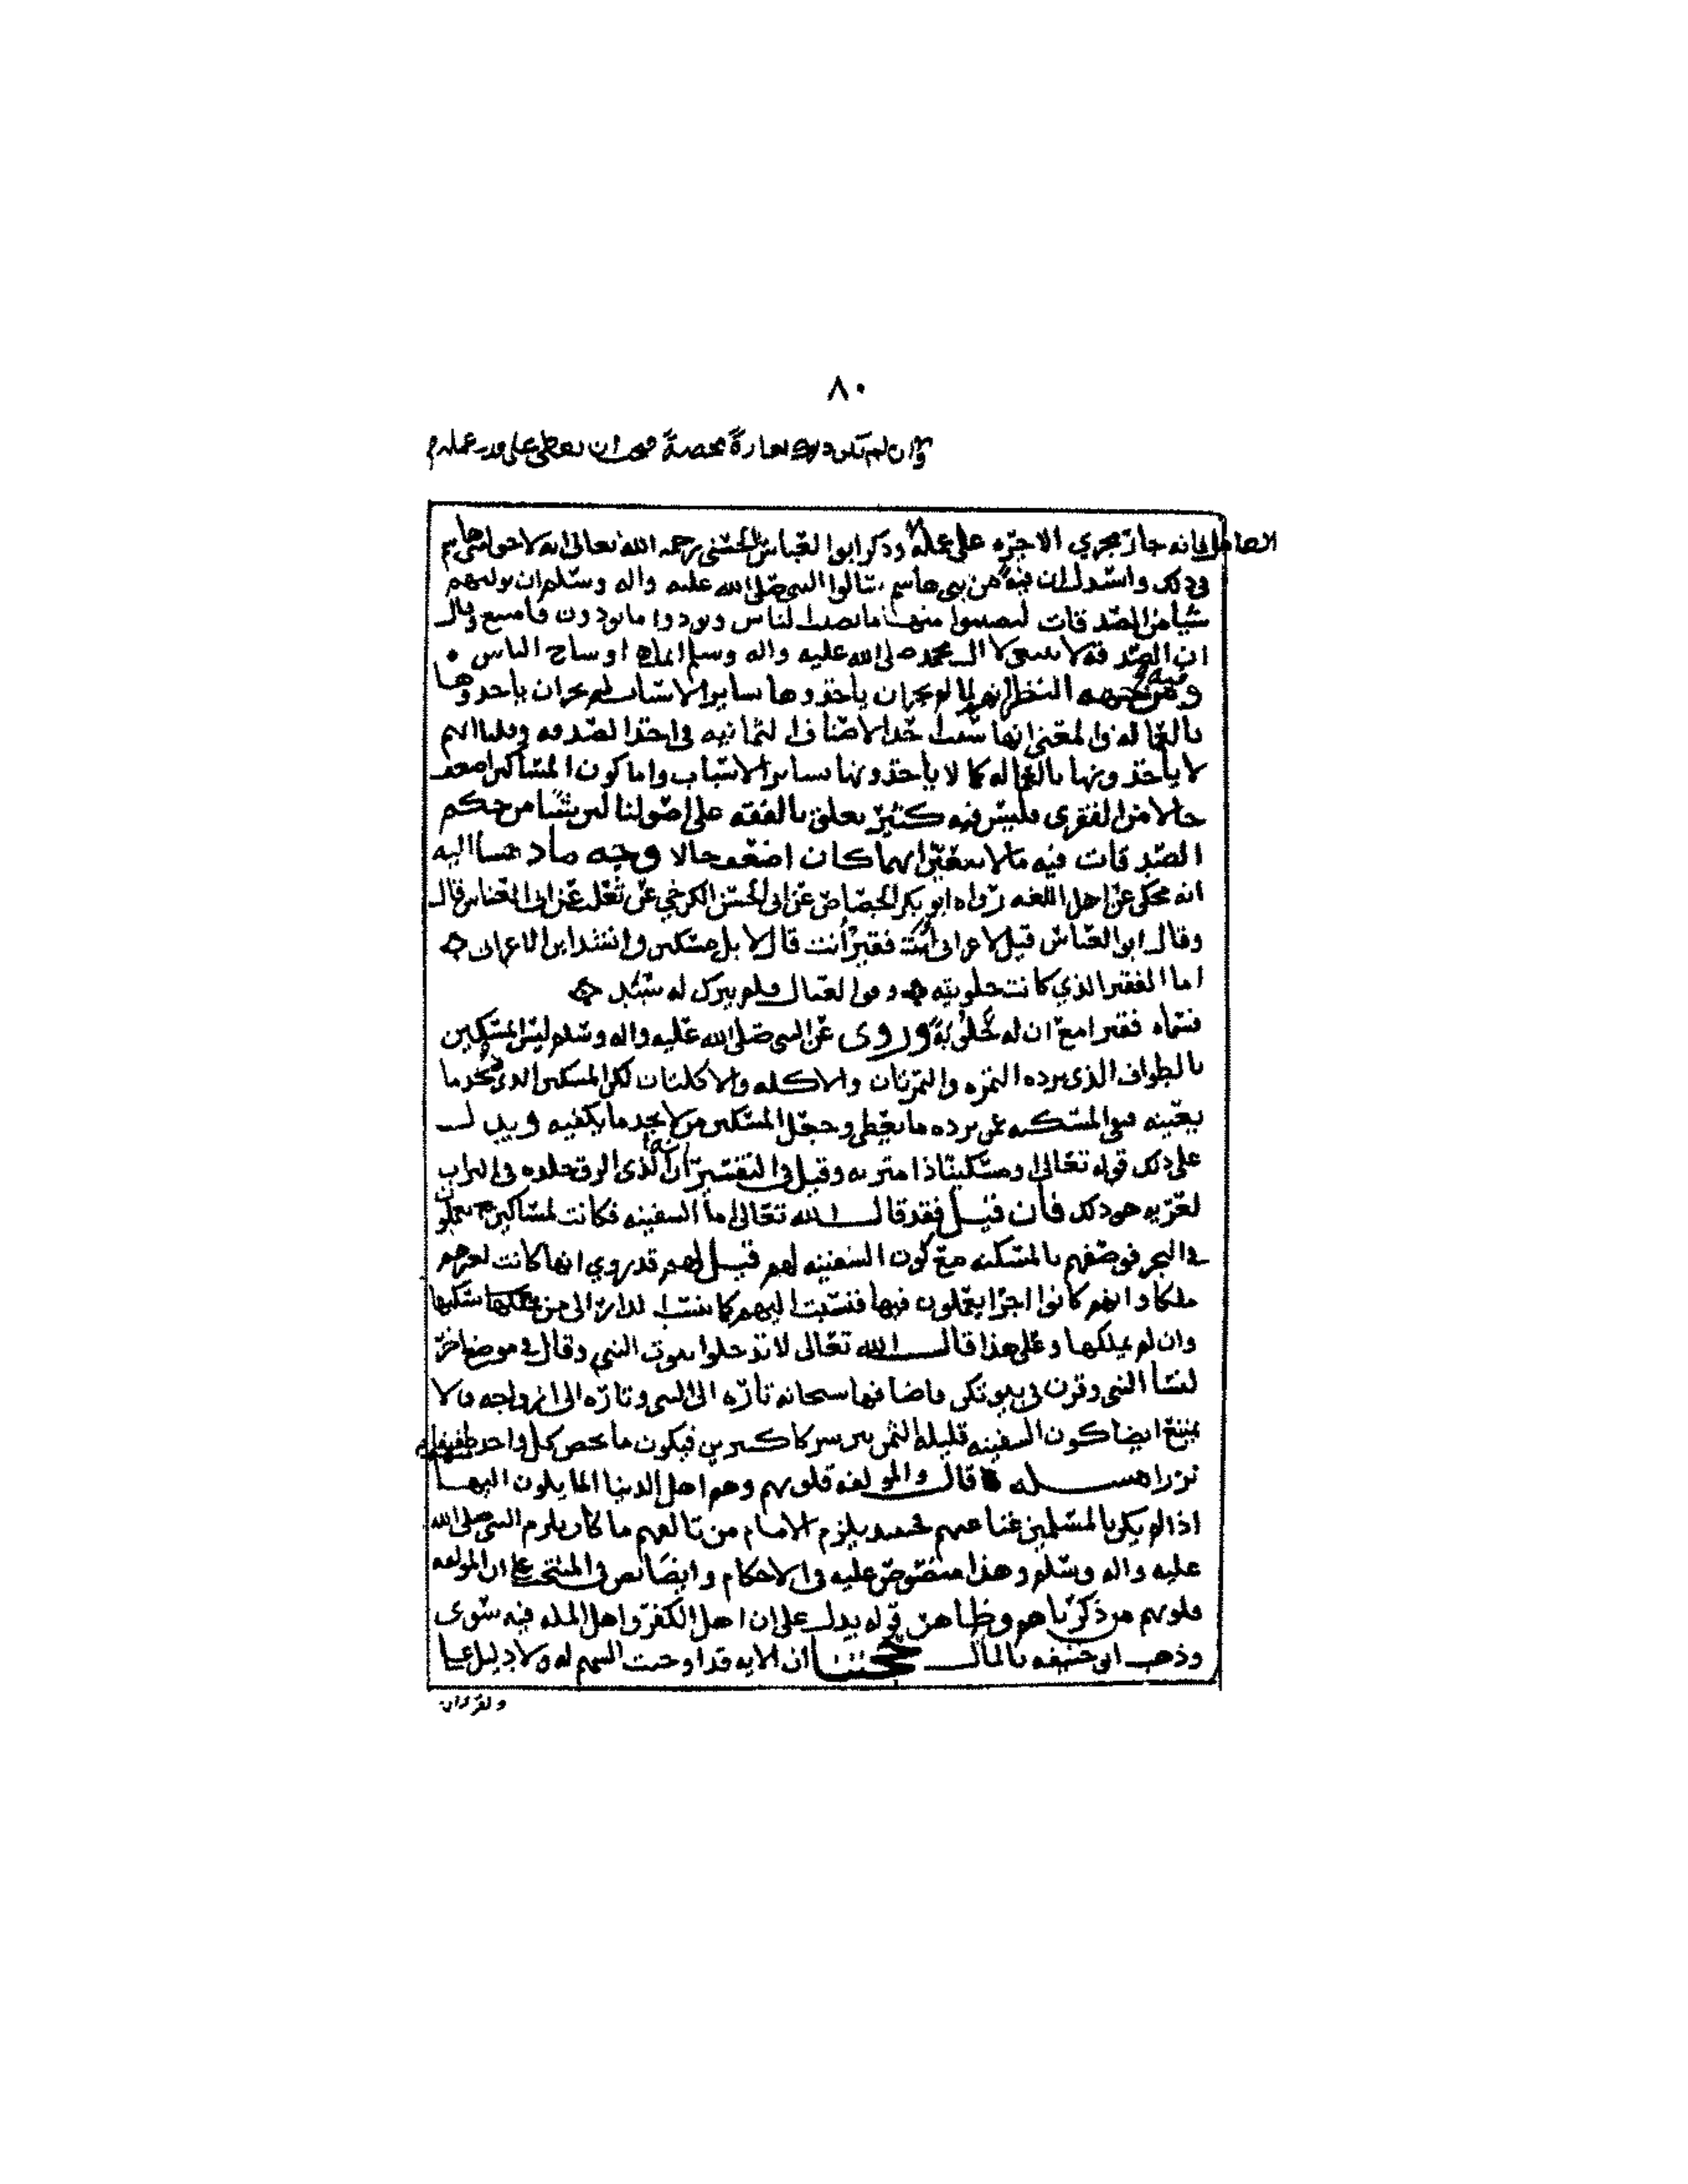 ٨٠
وان لم تكن عمارة محضة فيجب ان يعطي على قدر عمله
العامل فانه جار مجرى الاجره على عمله وذكر ابو العباس الحسني رحمه الله تعالى انه لا حق لبني هاشم
في ذلك واستدل ان فتية من بني هاشم سالوا النبي صلى الله عليه واله وسلم ان يوليهم
شيا من الصدقات ليصيبوا منها ما يصيب الناس ويودوا ما يودون فامتنع وقال
ان الصدقة لا تنبغي لال محمد صلى الله عليه واله وسلم انما هي اوساخ الناس
ومن جهه النظر انهم لما لم يجز ان ياخذوها بساير الاسباب لم يجز ان ياخذوها
بالعماله والمعنى انها سبب اخذ الاصناف الثمانيه في اخذ الصدقه وقلنا انهم
لا ياخذونها بالعماله كما لا ياخذونها بساير الاسباب واما كون المساكين اضعف
حالا من الفقرى فليس فيه كثير تعلق بالفقه على اصولنا ليس شيا من حكم
الصدقات فيه مما لا يتغير ايهما كان اضعف حالا وجه ما ذهبنا اليه
انه محكى عن اهل اللغه رواه ابو بكر الجصاص عن ابي الحسن الكرخي عن ثعلب عن ابي العباس قال
وقال ابو العباس قيل لاعرابي افقير أنت قال لا بل مسكين وانشد ابن الاعرابي
اما الفقير الذي كانت حلوبته وفق العيال فلم يترك له سبد
فسماه فقيرا مع ان له حلوبة وروى عن النبي صلى الله عليه واله وسلم ليس المسكين
بالطواف الذى ترده التمره والتمرتان والاكله والاكلتان لكن المسكين الذى لا يجد ما
يغنيه فنفى المسكنه عمن ترده ما يعطى وجعل المسكين من لا يجد ما يكفيه ويدل
على ذلك قوله تعالى او مسكينا ذا متربه وقيل في التفسير انه الذى الزق جلده في التراب
لعريه هو ذلك فان قيل فقد قال الله تعالى اما السفينه فكانت لمساكين يعملون
في البحر فوصفهم بالمسكنه مع كون السفينه لهم قيل لهم قد روي انها كانت لغيرهم
ملكا وانهم كانوا اجرا يعملون فيها فنسبت اليهم كما تنسب الدار الى من يسكنها
وان لم يملكها وعلى هذا قال الله تعالى لا تدخلوا بيوت النبي وقال في موضع اخر
لنسا النبي وقرن في بيوتكن فاضافها سبحانه تارة الى النبي وتارة الى ازواجه ولا
يمتنع ايضا كون السفينه قليله الثمن بين شركا كثيرين فيكون ما يخص كل واحد طفيفا
نزرا مسله قال والمولفه قلوبهم وهم اهل الدنيا المايلون اليها
اذا لم يكن بالمسلمين غنا عنهم فحينيذ يلزم الامام من تالفهم ما كان يلزم النبي صلى الله
عليه واله وسلم وهذا منصوص عليه في الاحكام وايضا نص في المنتخب على ان المولفه
قلوبهم من ذكرناهم وظاهر قوله يدل على ان اهل الكفر واهل المله فيه سوى
وذهب ابى حنيفه بالمال حجتنا ان الايه قد اوجبت السهم له ولا دليل على